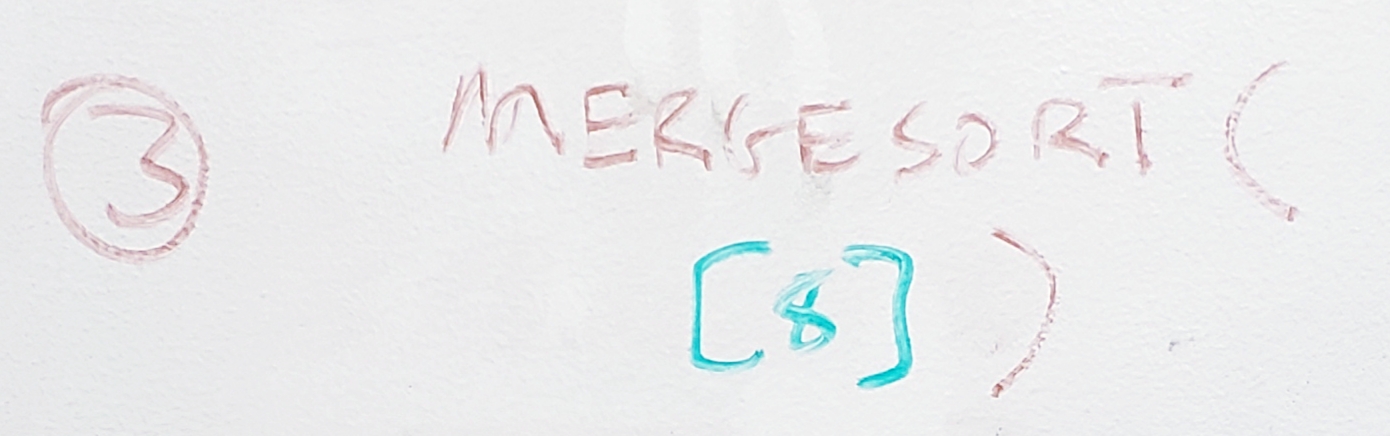 3 MERGESORT(
[8] )